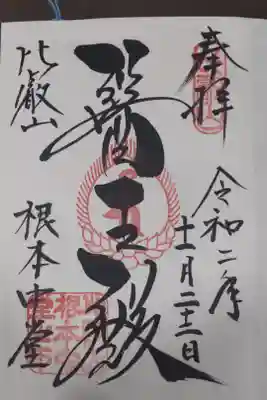 奉拝
令和二年
十一月二十二日
醫王殿
比叡山
根本中堂